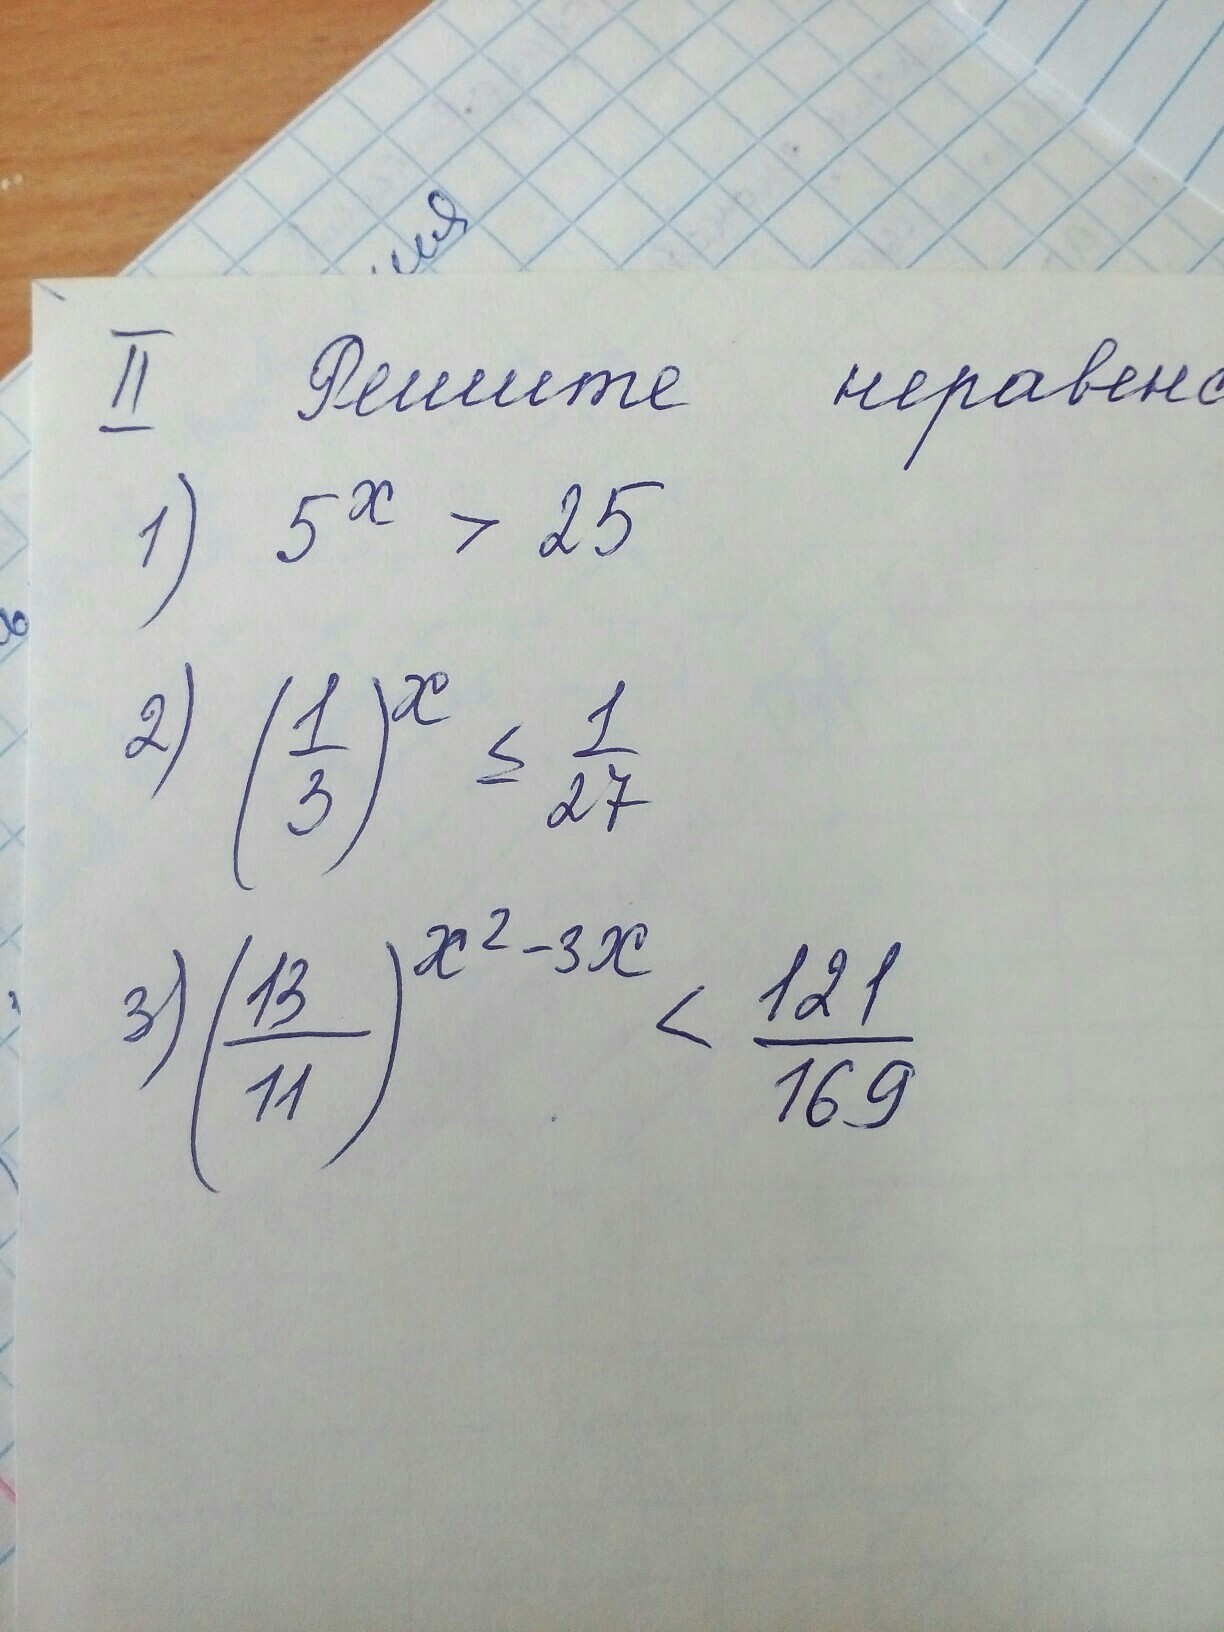 II Решите неравенс
1) 5^x > 25
2) (1/3)^x ≤ 1/27
3) (13/11)^(x²-3x) < 121/169